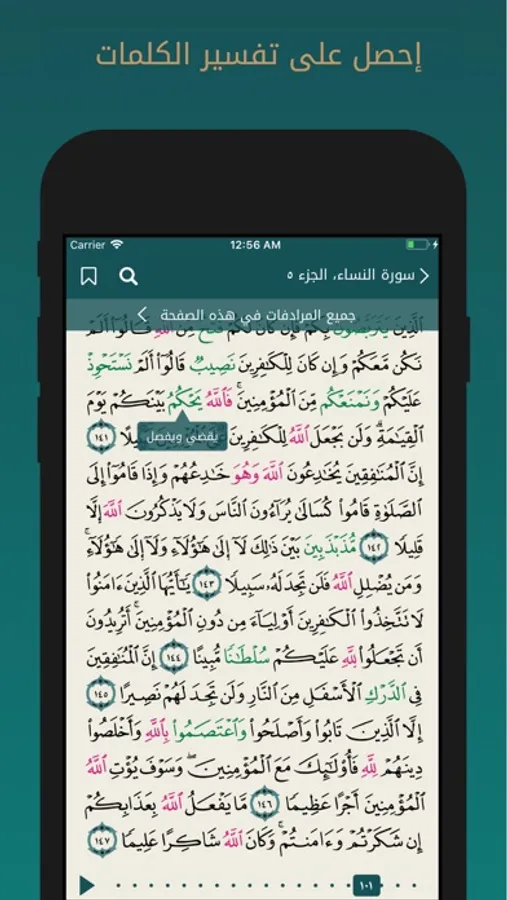 إحصل على تفسير الكلمات
Carrier 12:56 AM
سورة النساء، الجزء ٥
جميع المرادفات في هذه الصفحة
ٱلَّذِينَ يَتَرَبَّصُونَ بِكُمْ فَإِن كَانَ لَكُمْ فَتْحٌ مِّنَ ٱللَّهِ قَالُوٓا۟ أَلَمْ
نَكُن مَّعَكُمْ وَإِن كَانَ لِلْكَٰفِرِينَ نَصِيبٌ قَالُوٓا۟ أَلَمْ نَسْتَحْوِذْ
عَلَيْكُمْ وَنَمْنَعْكُم مِّنَ ٱلْمُؤْمِنِينَ ۚ فَٱللَّهُ يَحْكُمُ بَيْنَكُمْ يَوْمَ
ٱلْقِيَٰمَةِ ۗ وَلَن يَجْعَلَ ٱللَّهُ لِلْكَٰفِرِينَ يلًا ١٤١
يقضي ويفصل
إِنَّ ٱلْمُنَٰفِقِينَ يُخَٰدِعُونَ ٱللَّهَ وَهُوَ خَٰدِعُهُمْ وَإِذَا قَامُوٓا۟ إِلَى
ٱلصَّلَوٰةِ قَامُوا۟ كُسَالَىٰ يُرَآءُونَ ٱلنَّاسَ وَلَا يَذْكُرُونَ ٱللَّهَ إِلَّا
قَلِيلًا ١٤٢ مُّذَبْذَبِينَ بَيْنَ ذَٰلِكَ لَآ إِلَىٰ هَٰٓؤُلَآءِ وَلَآ إِلَىٰ هَٰٓؤُلَآءِ ۚ
وَمَن يُضْلِلِ ٱللَّهُ فَلَن تَجِدَ لَهُۥ سَبِيلًا ١٤٣ يَٰٓأَيُّهَا ٱلَّذِينَ ءَامَنُوا۟
لَا تَتَّخِذُوا۟ ٱلْكَٰفِرِينَ أَوْلِيَآءَ مِن دُونِ ٱلْمُؤْمِنِينَ ۚ أَتُرِيدُونَ
أَن تَجْعَلُوا۟ لِلَّهِ عَلَيْكُمْ سُلْطَٰنًا مُّبِينًا ١٤٤ إِنَّ ٱلْمُنَٰفِقِينَ
فِى ٱلدَّرْكِ ٱلْأَسْفَلِ مِنَ ٱلنَّارِ وَلَن تَجِدَ لَهُمْ نَصِيرًا ١٤٥
إِلَّا ٱلَّذِينَ تَابُوا۟ وَأَصْلَحُوا۟ وَٱعْتَصَمُوا۟ بِٱللَّهِ وَأَخْلَصُوا۟
دِينَهُمْ لِلَّهِ فَأُو۟لَٰٓئِكَ مَعَ ٱلْمُؤْمِنِينَ ۖ وَسَوْفَ يُؤْتِ ٱللَّهُ
ٱلْمُؤْمِنِينَ أَجْرًا عَظِيمًا ١٤٦ مَّا يَفْعَلُ ٱللَّهُ بِعَذَابِكُمْ
إِن شَكَرْتُمْ وَءَامَنتُمْ ۚ وَكَانَ ٱللَّهُ شَاكِرًا عَلِيمًا ١٤٧
١٠١